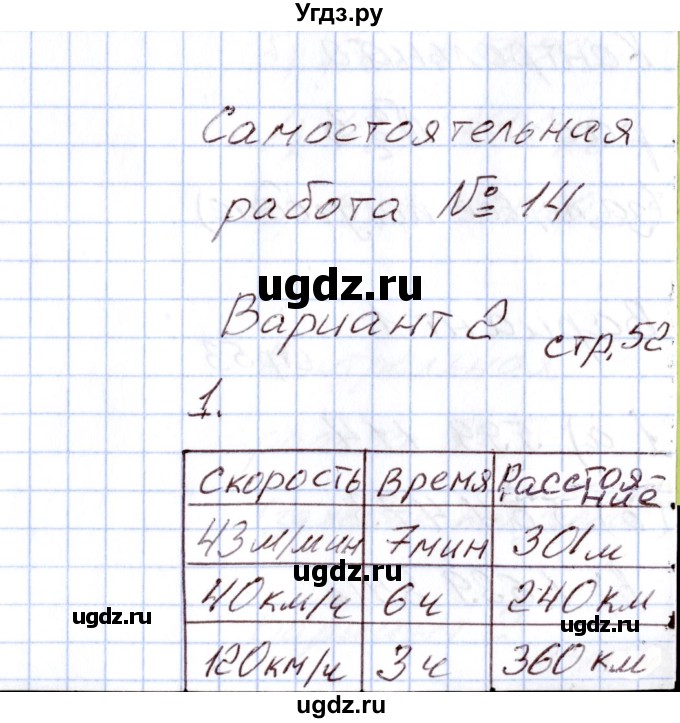 Угдз.ру
Самостоятельная
работа № 14
ugdz.ru
Вариант 2 стр. 52
1.
Скорость Время Расстоя-
ние
ugdz.ru
43 м/мин 7 мин 301 м
ugdz.ru
40 км/ч 6 ч 240 км
ugdz.ru
ugdz.ru
120 км/ч 3 ч 360 км
ugdz.ru